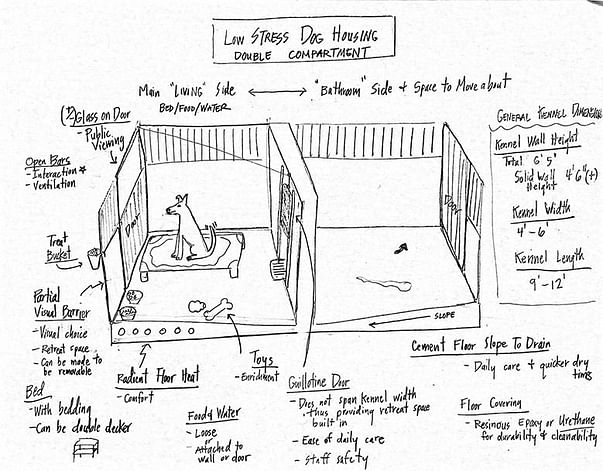 Low Stress Dog Housing
Double Compartment
Main "Living" Side
Bed/Food/Water
"Bathroom" Side + Space to Move about
(½) Glass on Door
- Public Viewing
Open Bars
- Interaction
- Ventilation
Treat Bucket
Partial Visual Barrier
- Visual choice
- Retreat space
- Can be made to be removable
Bed
- With bedding
- Can be double decker
Radient Floor Heat
- Comfort
Food & Water
- Loose
or
- Attached to wall or door
Toys
- Enrichment
Guillotine Door
- Does not span kennel width thus providing retreat space built in
- Ease of daily care
- Staff safety
Door
Door
Slope
Cement Floor Slope To Drain
- Daily care + quicker dry times
Floor Covering
- Resinous Epoxy or Urethane for durability & cleanability
General Kennel Dimensions
Kennel Wall Height
Total 6' 5"
Solid Wall Height 4' 6" (+)
Kennel Width
4' - 6'
Kennel Length
9' - 12'